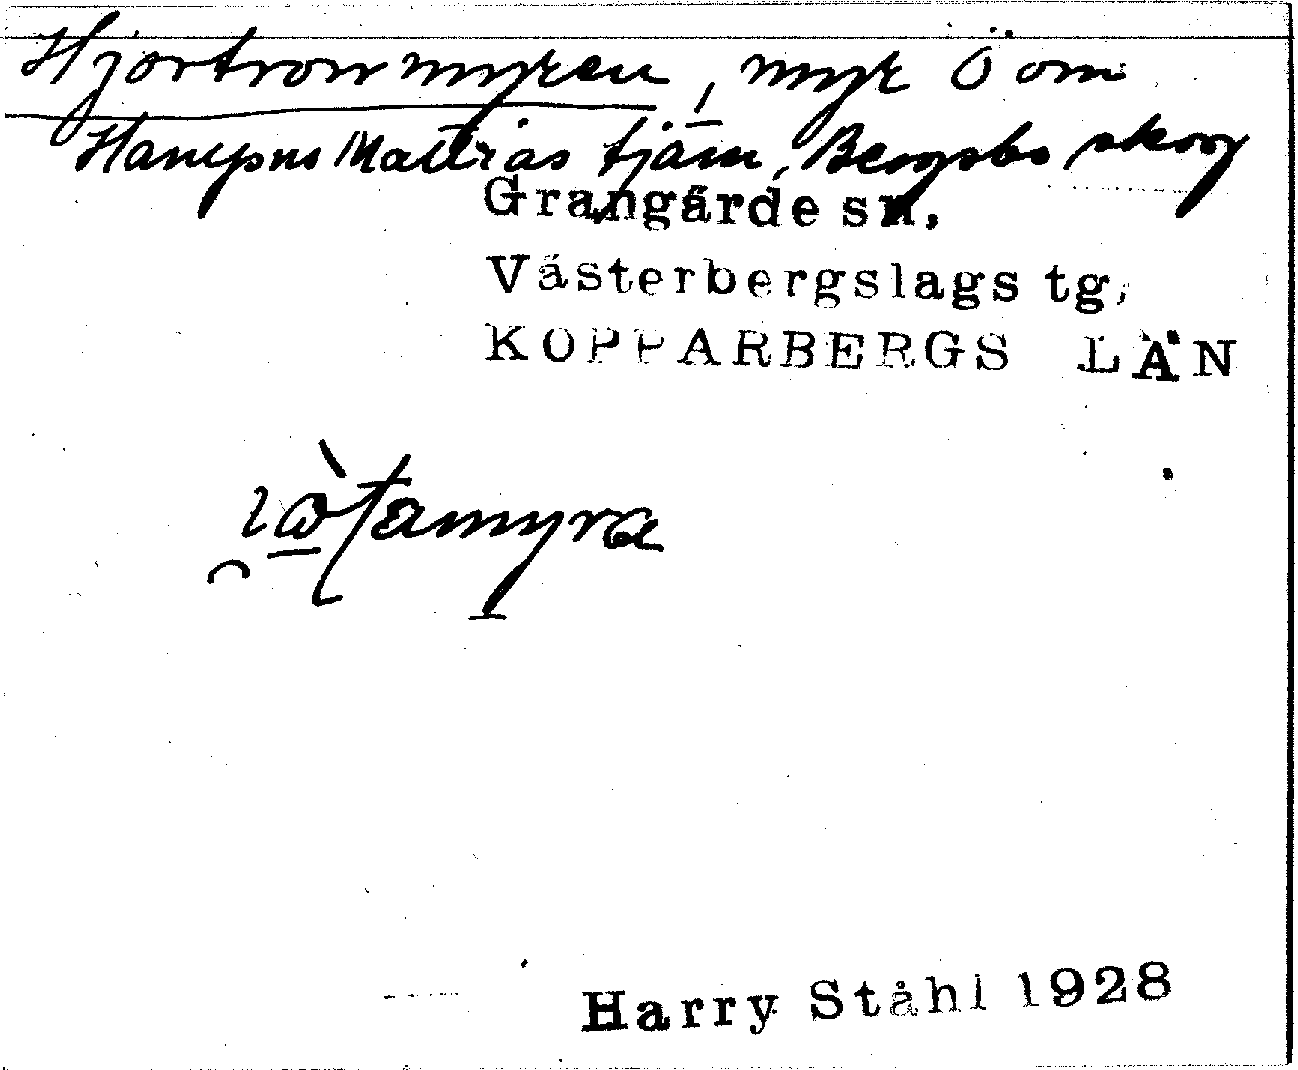 Hjortronmyren, myr Ö om
Mattias tjärn, Bergsbo skog
Grangärde sn.
Västerbergslags tg.
KOPPARBERGS LÄN
Harry Ståhl 1928